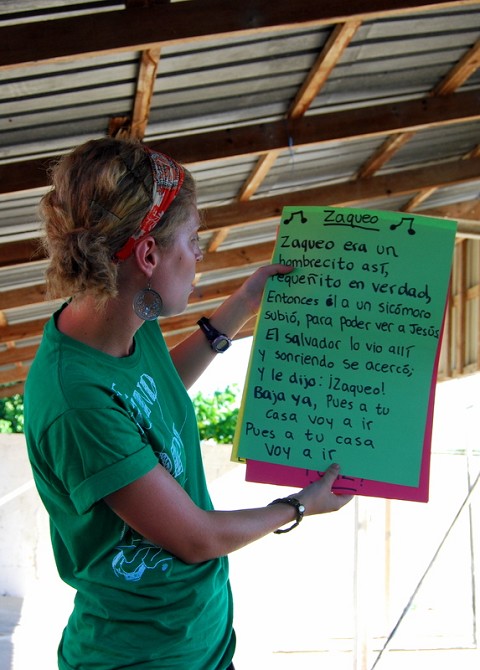 Zaqueo
Zaqueo era un
hombrecito así,
pequeñito en verdad,
Entonces él a un sicómoro
subió, para poder ver a Jesús
El salvador lo vio allí
y sonriendo se acercó;
y le dijo: ¡Zaqueo!
Baja ya, Pues a tu
casa voy a ir
Pues a tu casa
voy a ir